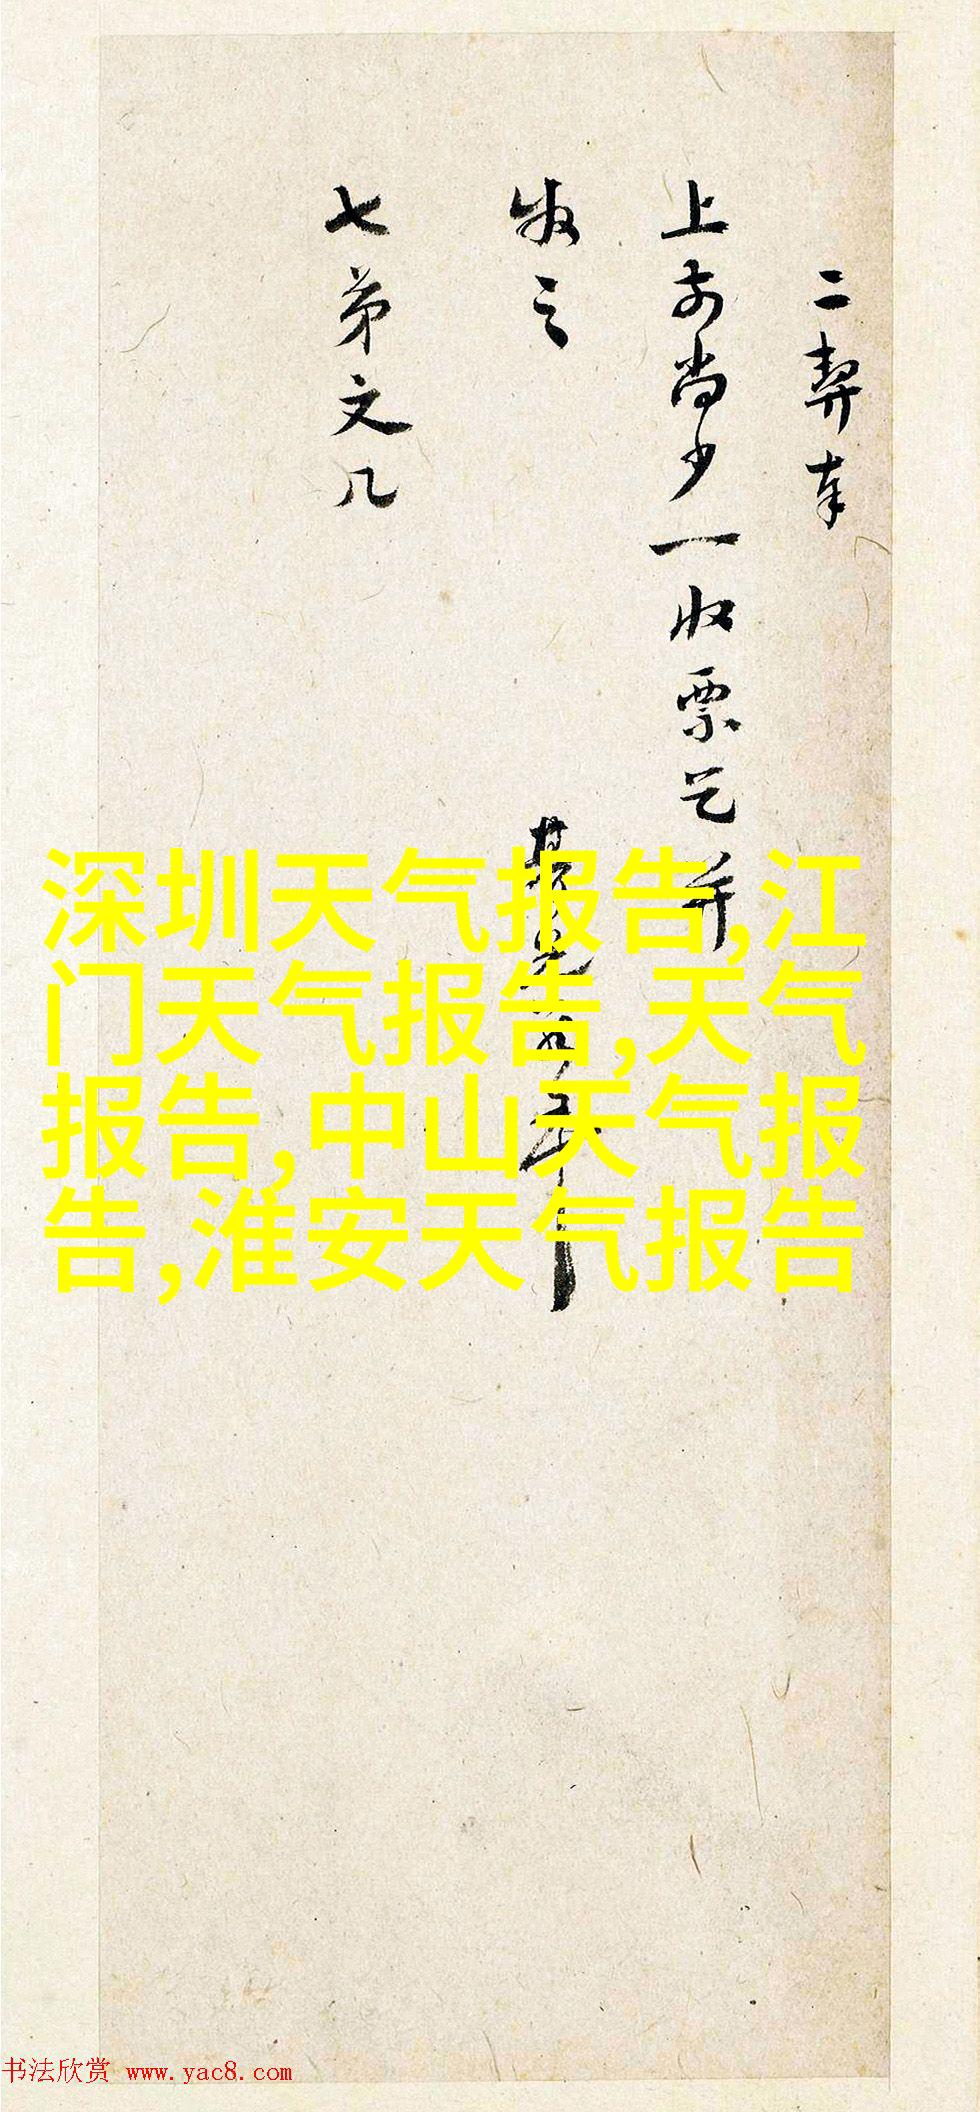 二契奉
上前尚少一收票乞并
收之
其昌
七弟文几
深圳天气报告,江
门天气报告,天气
报告,中山天气报
告,淮安天气报告
书法欣赏 www.yac8.com